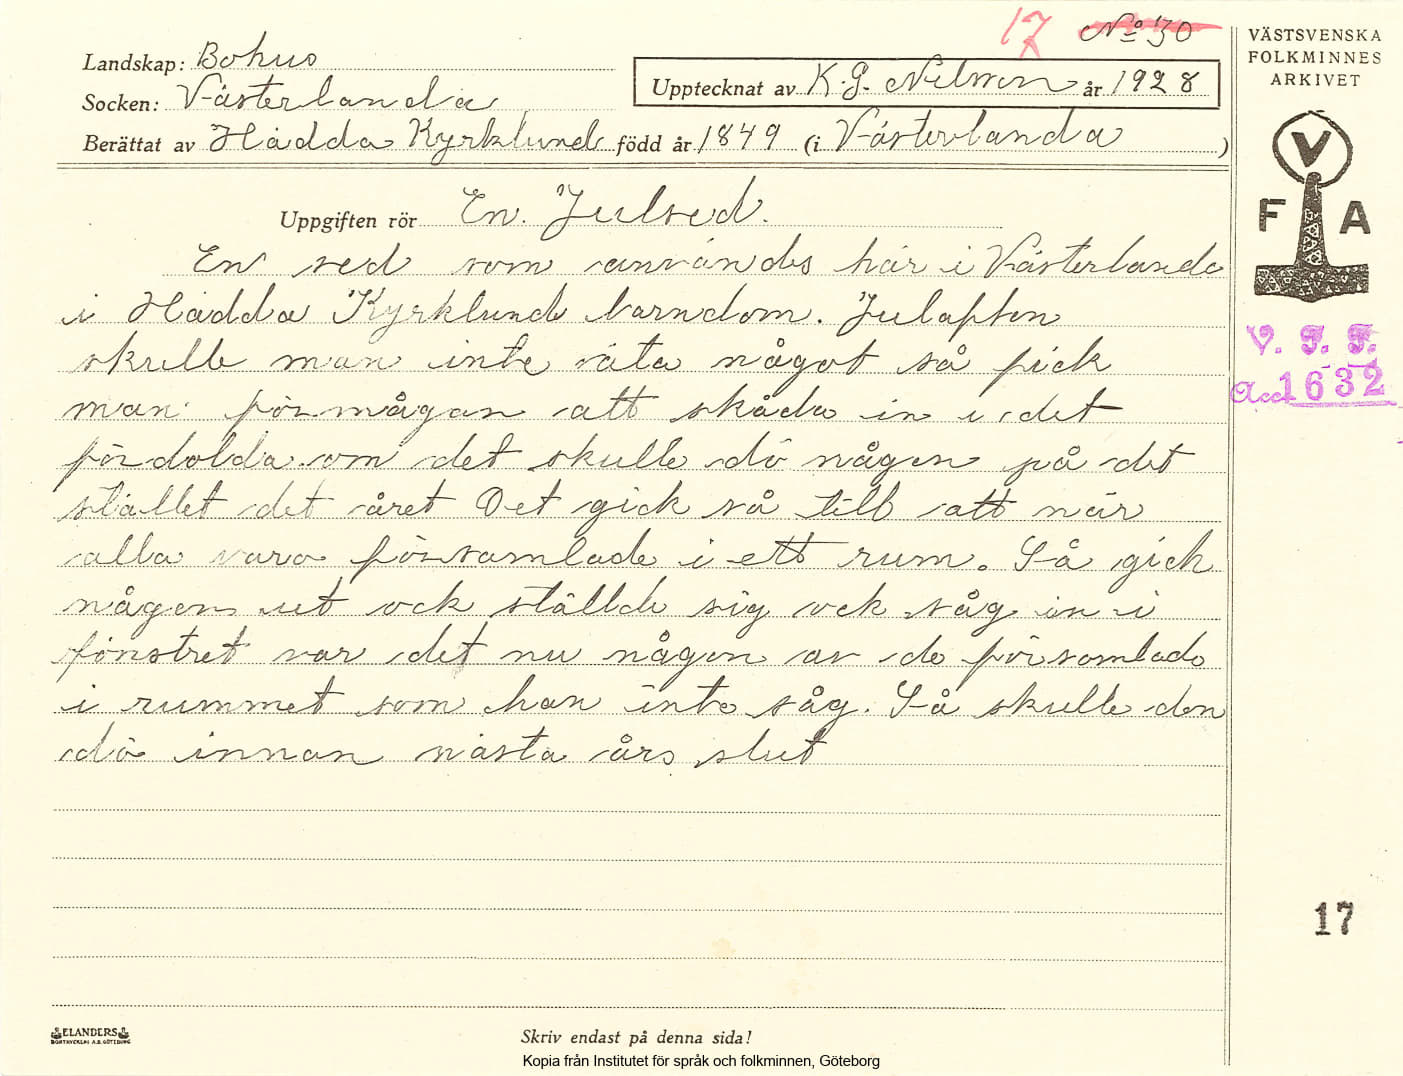 17 No 30
VÄSTSVENSKA
FOLKMINNES
ARKIVET
Landskap: Bohus
Socken: Västerlanda
Upptecknat av K. G. Nilsson år 1928
Berättat av Hådda Kyrklund född år 1849 (i Västerlanda )
V
F A
V. F. F.
Acc 1632
Uppgiften rör En. Julsed.
En sed som användes här i Västerlanda
i Hådda Kyrklunds barndom. Julafton
skulle man inte äta något så fick
man förmågan att skåda in i det
fördolda om det skulle dö någon på det
stället det året Det gick så till att när
alla varo församlade i ett rum. Så gick
någon ut ock ställde sig ock såg in i
fönstret var det nu någon av de församlade
i rummet som han inte såg. Så skulle den
dö innan nästa års slut
17
ELANDERS
BOKTRYCKERI A.B. GÖTEBORG
Skriv endast på denna sida!
Kopia från Institutet för språk och folkminnen, Göteborg